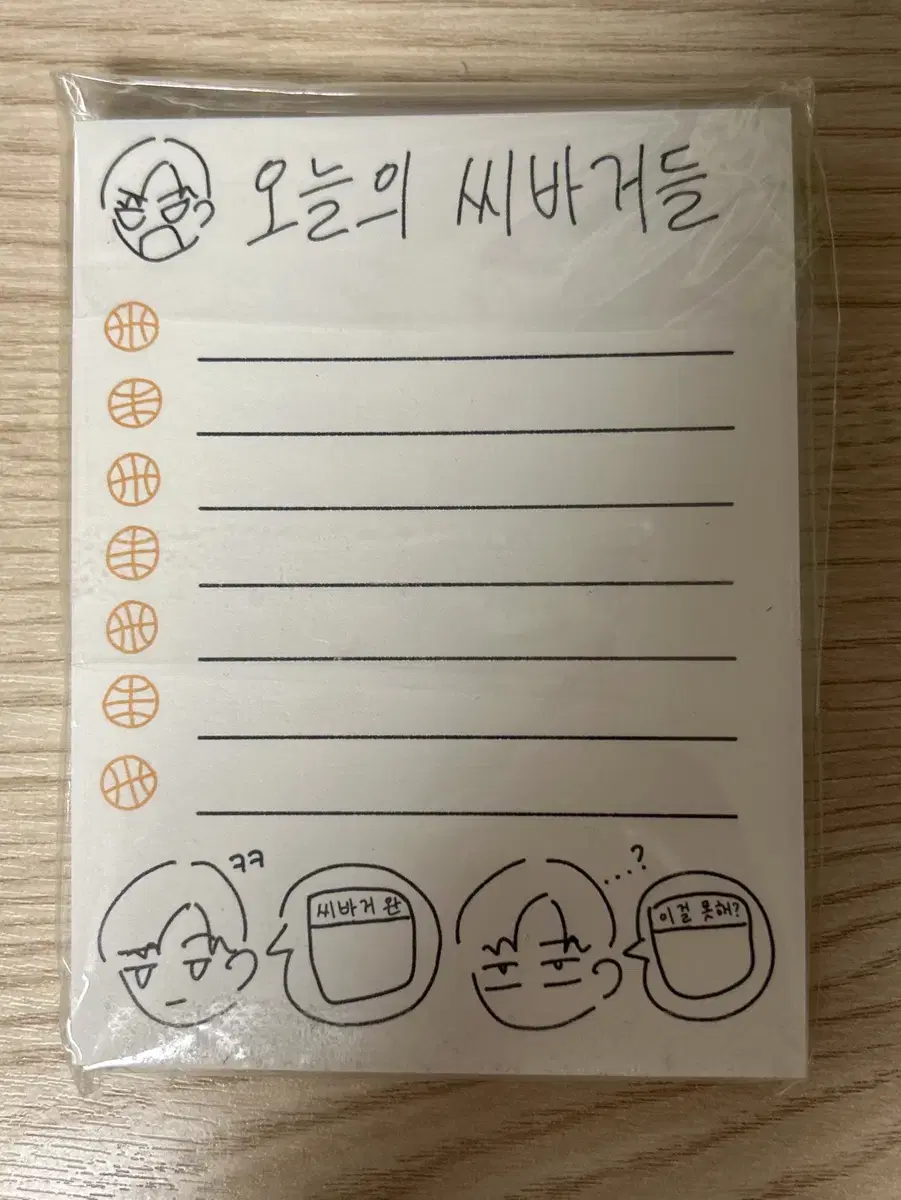 오늘의 씨바거들
ㅋㅋ
씨바거 완
...?
이걸 못해?